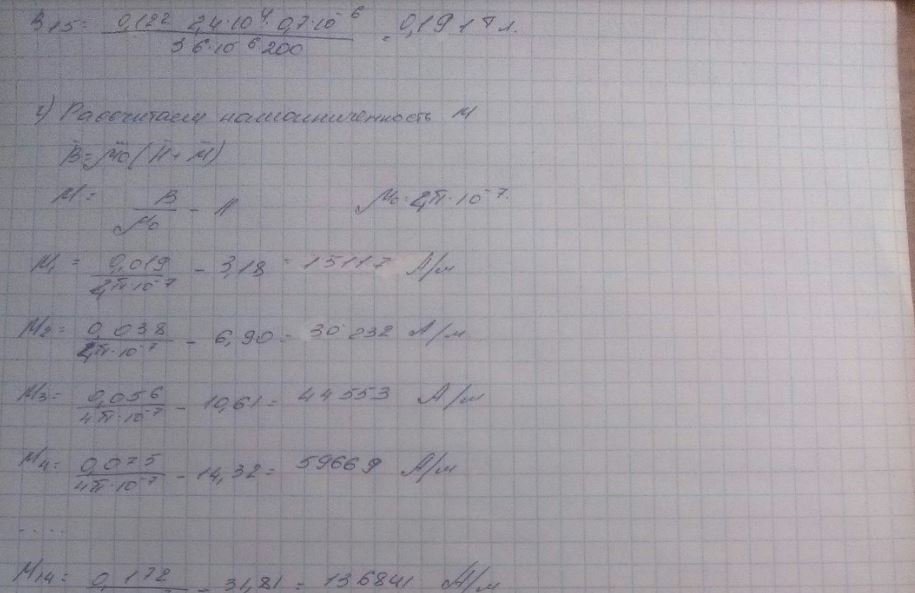 B15 = 0,122 · 2,4·10⁴ · 0,7·10⁻⁶ / 36·10⁻⁶ 200 = 0,1917 л.
4) Рассчитаем намагниченность M
B = μ0(H + M)
M = B/μ0 - H   μ0 = 4π·10⁻⁷.
M1 = 0,019/4π·10⁻⁷ - 3,18 = 15117 А/м
M2 = 0,038/4π·10⁻⁷ - 6,90 = 30232 А/м
M3 = 0,056/4π·10⁻⁷ - 10,61 = 44553 А/м
M4 = 0,075/4π·10⁻⁷ - 14,32 = 59669 А/м
....
M14 = 0,172 - 31,81 = 136841 А/м